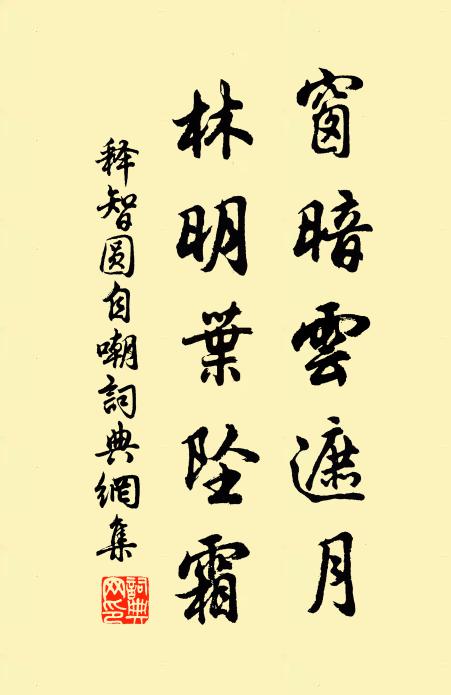 窗暗雲遮月
林明葉坠霜
释智圆自嘲詞典網集
詞典
网印